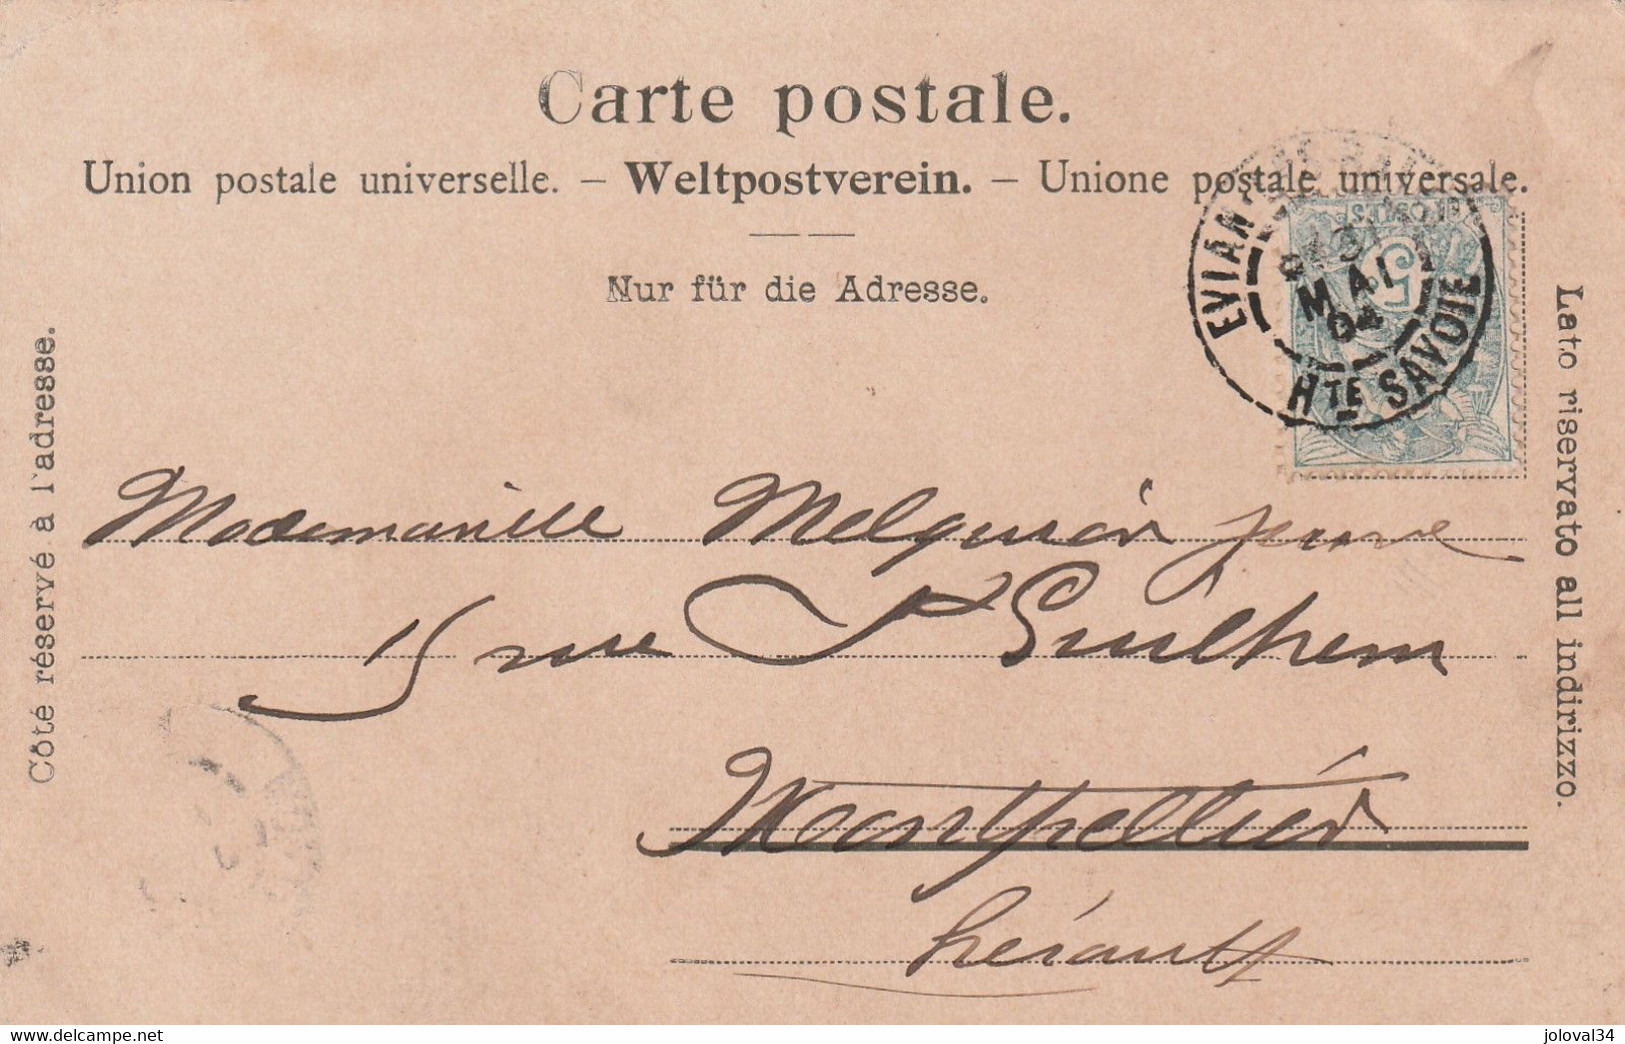 Carte postale.
Union postale universelle. – Weltpostverein. – Unione postale universale.
Nur für die Adresse.
Côté réservé à l'adresse.
Lato riservato all indirizzo.
EVIAN
MAI
04
HTE SAVOIE
5
Mademoiselle Melguior jeune
15 rue St Guilhem
Montpellier
hérault
https://www.delcampe.net
joloval34